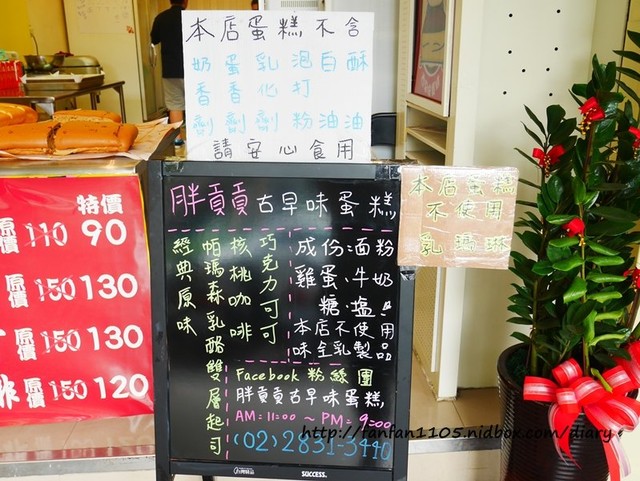 本店蛋糕不含
奶蛋乳泡白酥
香香化打
劑劑劑粉油油
請安心食用
胖貢貢古早味蛋糕
巧克力可可
核桃咖啡
帕瑪森乳酪雙層起司
經典原味
成份:面粉
雞蛋、牛奶
糖、塩。
本店不使用
味全乳製品
Facebook 粉絲團
胖貢貢古早味蛋糕
AM=11:00 ~ PM=9:00
(02)2831-3440
SUCCESS.
本店蛋糕
不使用
乳瑪琳
特價
原價 110 90
原價 150 130
原價 150 130
原價 150 120
http://fanfan1105.nidbox.com/diary